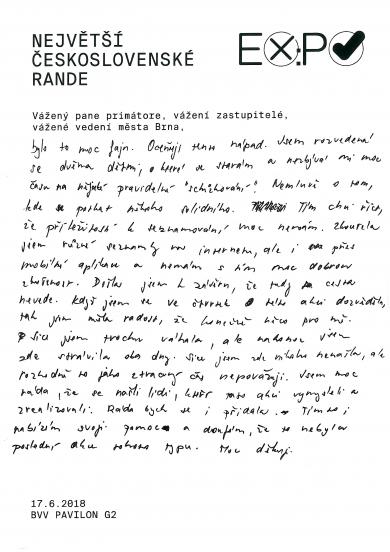 NEJVĚTŠÍ
ČESKOSLOVENSKÉ
RANDE
EXPO
Vážený pane primátore, vážení zastupitelé,
vážené vedení města Brna,
bylo to moc fajn. Oceňuji tento nápad. Jsem rozvedená
se dvěma dětmi, o které se starám a nezbývá mi moc
času na nějaké pravidelné "schůzkování". Nemluvě o tom,
kde se potkat někoho solidního. Tím chci říct,
že příležitostí k seznamování moc nemám. Zkoušela
jsem různé seznamky na internetu, ale i přes
mobilní aplikace a nemám s tím moc dobrou
zkušenost. Došla jsem k závěru, že tudy cesta
nevede. Když jsem se ve čtvrtek o této akci dozvěděla,
tak jsem měla radost, že konečně něco pro mě.
Sice jsem trochu váhala, ale nakonec jsem
zde strávila oba dny. Sice jsem zde nikoho nenašla, ale
rozhodně to jako ztracený čas nepovažuji. Jsem moc
ráda, že se našli lidi, kteří tuto akci vymysleli a
zrealizovali. Ráda bych se i přidala. Tímto i
nabízím svoji pomoc a doufám, že to nebyla
poslední akce tohoto typu. Moc děkuji.
17.6.2018
BVV PAVILON G2